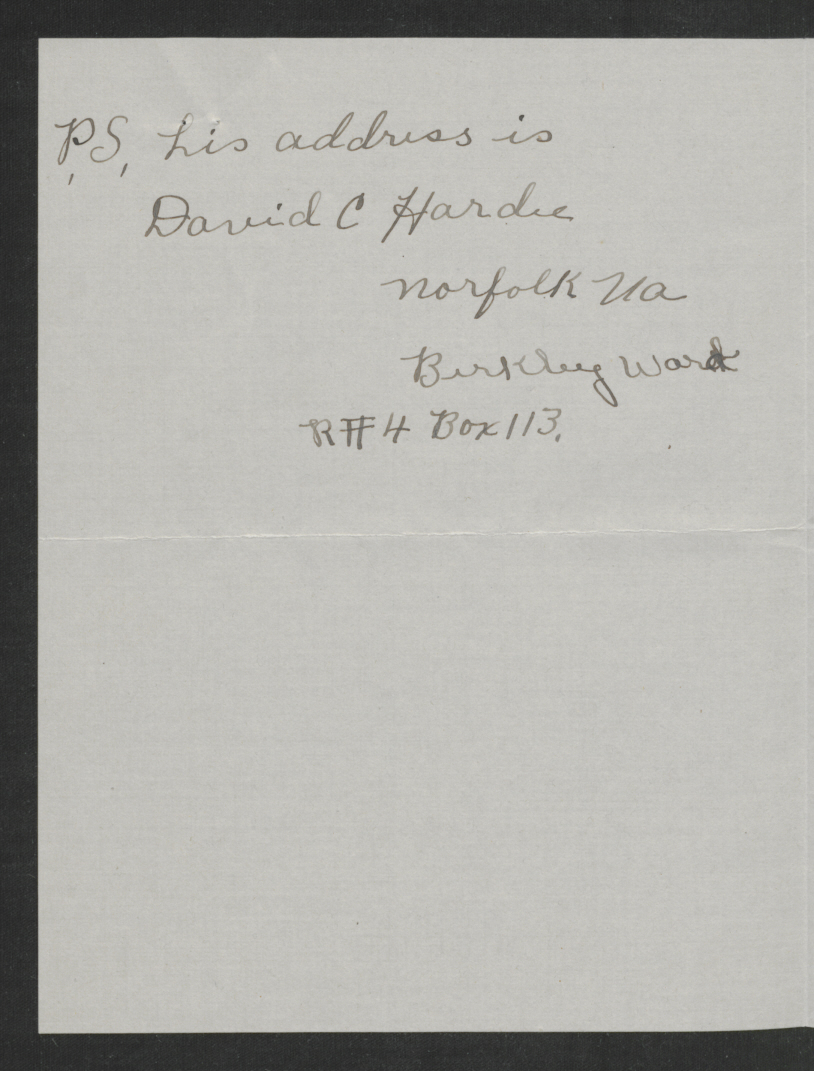 P.S, his address is
David C Hardie
Norfolk Va
Berkley Ward
R#4 Box 113.